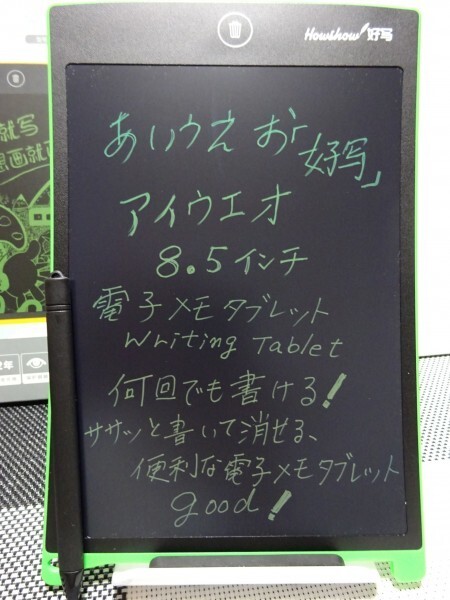 Howshow 好写
あいうえお「好写」
アイウエオ
8.5インチ
電子メモタブレット
Writing Tablet
何回でも書ける!
ササッと書いて消せる、
便利な電子メモタブレット
good!
就写
画就